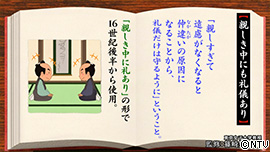 【親しき中にも礼儀あり】
「親しすぎて
遠慮がなくなると
仲違いの原因に
なることから、
礼儀だけは守るように」ということ。
「親しき中に礼あり」の形で
16世紀後半から使用。
©NTV